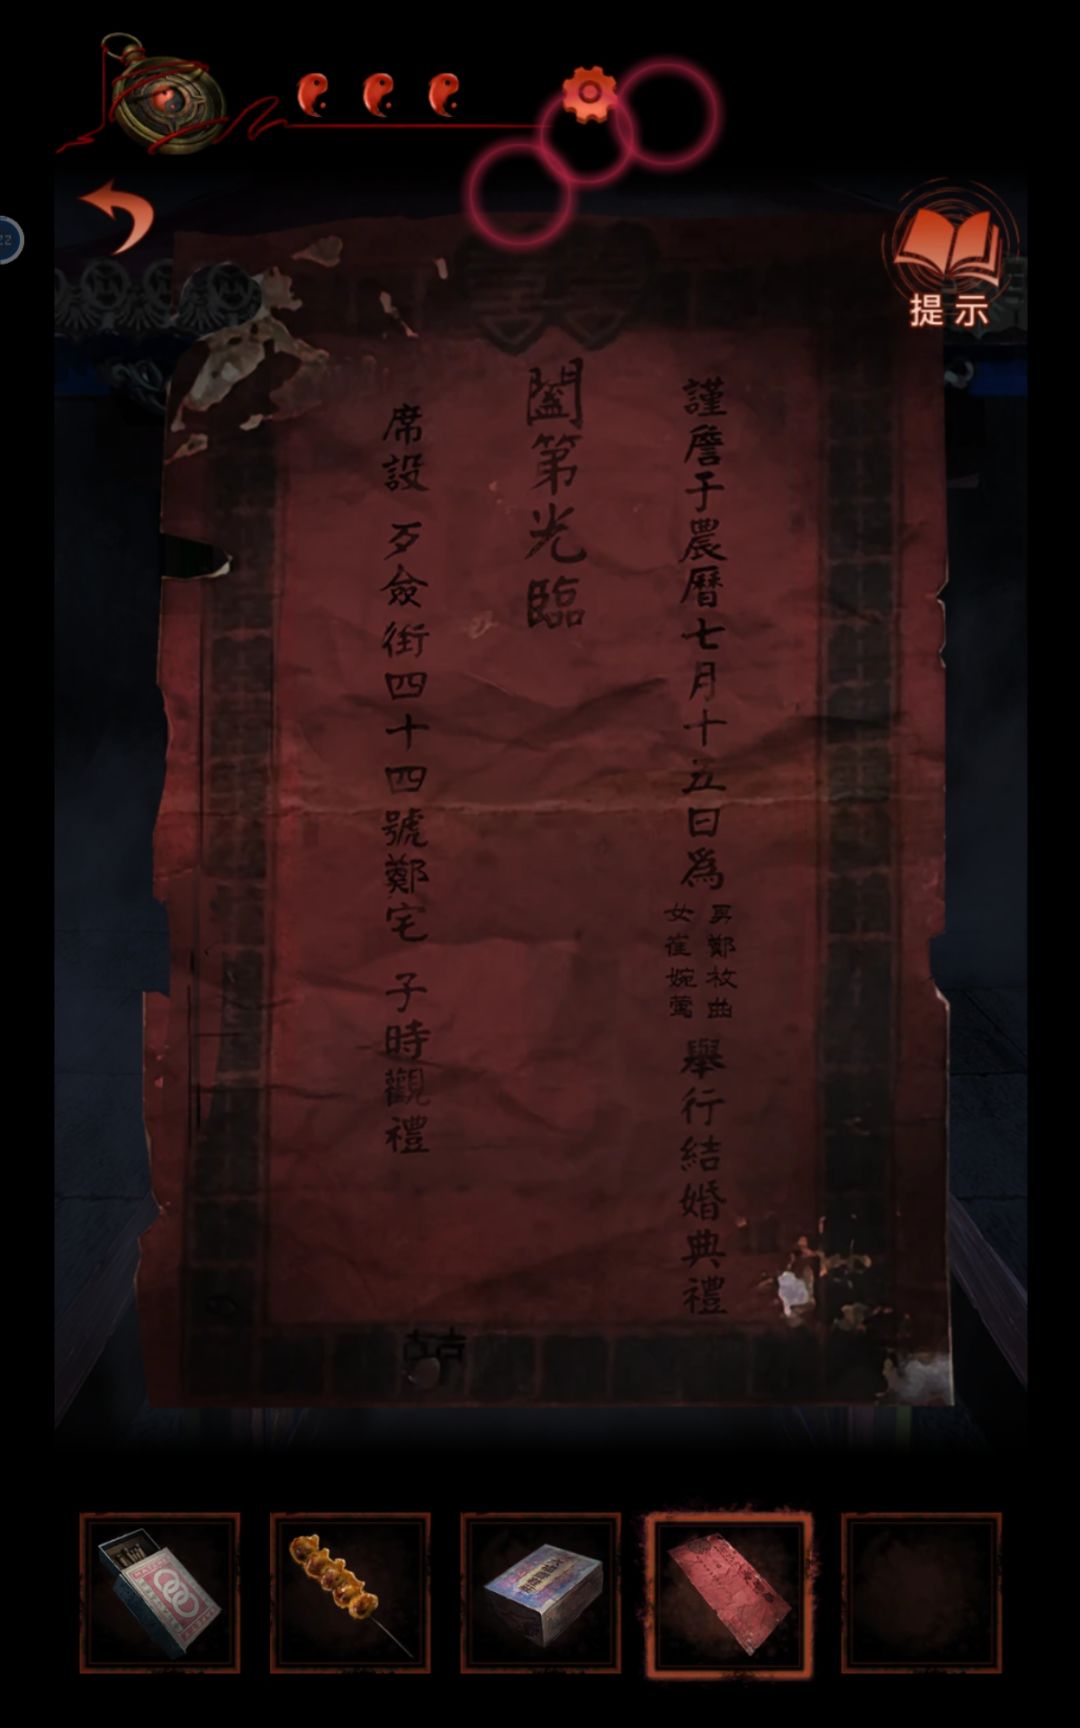 提示
囍
謹詹于農曆七月十五日爲
男鄭枚曲
女崔婉鶯
舉行結婚典禮
闔第光臨
席設 歹㑒街四十四號鄭宅 子時觀禮